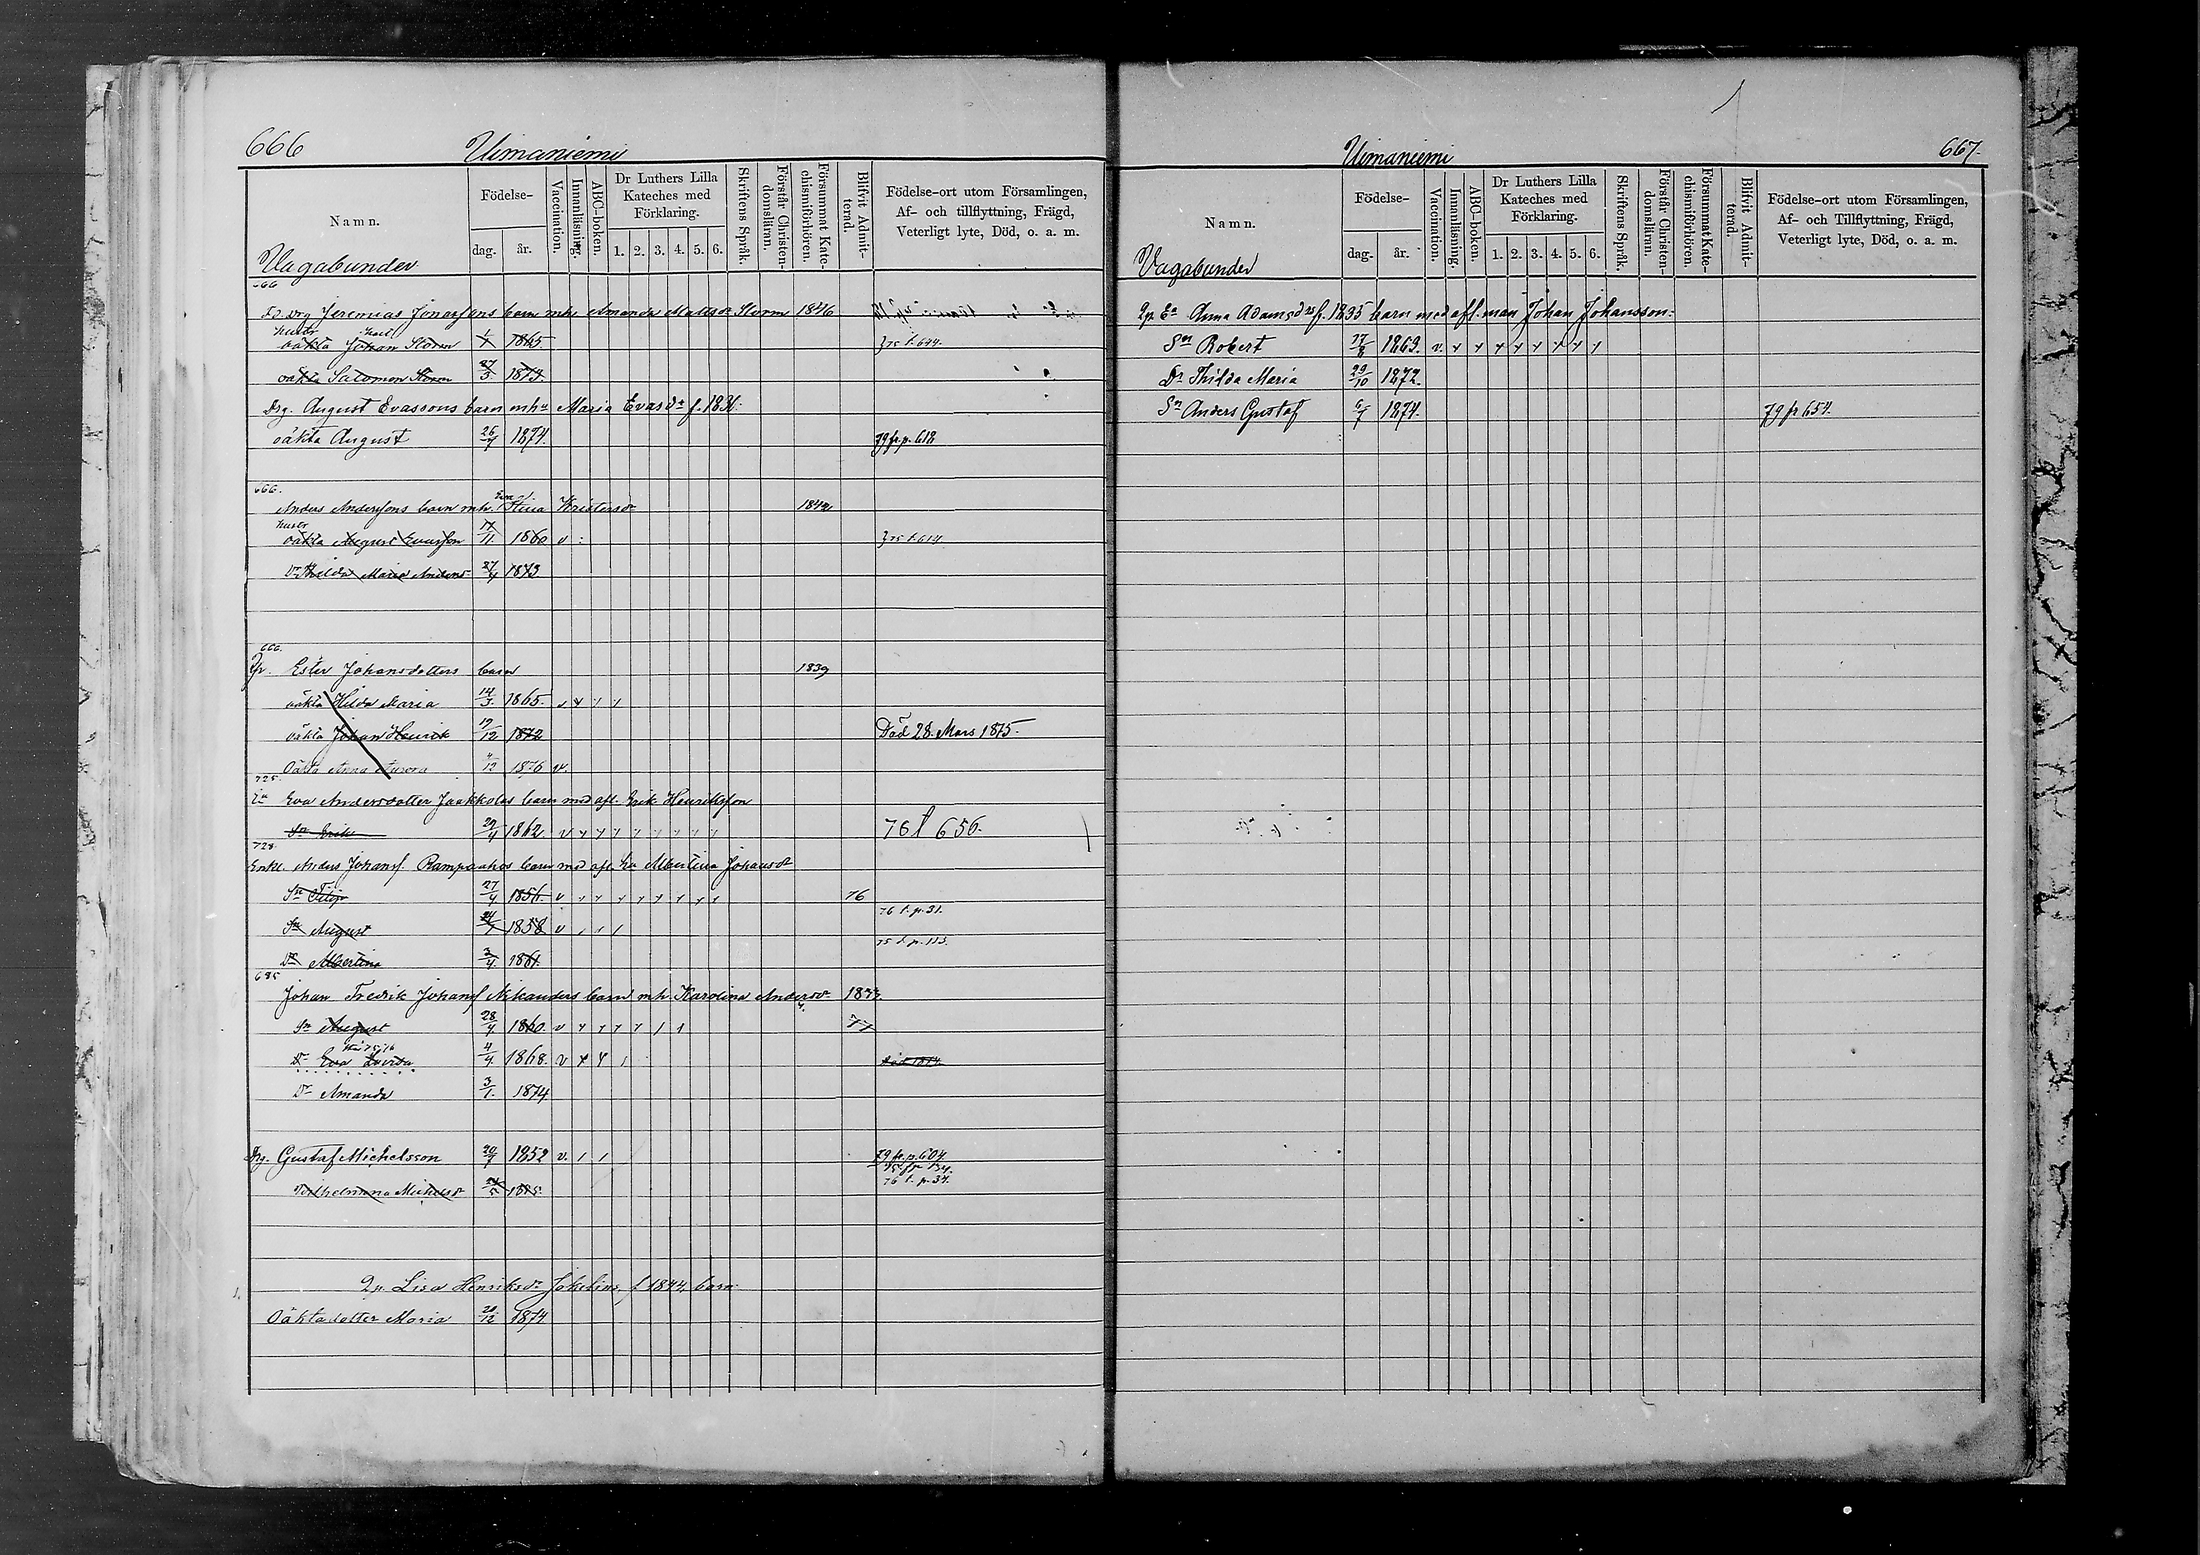 666
Uimaniemi
Namn.
Födelse-
dag.
år.
Vaccination.
Innanläsning.
ABC-boken.
Dr Luthers Lilla
Kateches med
Förklaring.
1. 2. 3. 4. 5. 6.
Skriftens Språk.
Förstår Christen-
domsläran.
Försummat Kate-
chismiförhören.
Blifvit Admit-
terad.
Födelse-ort utom Församlingen,
Af- och tillflyttning, Frägd,
Veterligt lyte, Död, o. a. m.
Vagabunder
666
Drg Jeremias Jonassons barn mh. Amanda Mattsdr Storm 1846
oäkta Johan Storm 1865
oäkta Salomon Storm 27/3 1873
Drg. August Evassons barn mhu Maria Evasdr f. 1831.
oäkta August 26/7 1874. 79 fr. p. 618
666.
Anders Anderssons barn mh. Eva Stina Kristersdr 1842
hustr
oäkta August Evasson 17/11. 1860 v
Dr Hilda Maria Anders 27/4 1873
666.
Ester Johansdotters barn 1839
oäkta Hilda Maria 14/3. 1865.
oäkta Johan Henrik 19/12 1872 Död 28. Mars 1875.
Oäkta Anna Aurora 1876 v.
725.
Ea Eva Andersdotter Jaakkolas barn med afl. Erik Henriksson
Sn Erik 29/4 1862. v 76 t 656.
728.
Enkl. Anders Johanss. Rampankos barn med afl. Hu Albertina Johansdr
Sn Filip 27/4 1856. v 76
76 t. p. 31.
Sn August 1858 v
75 t. p. 113.
Dr Albertina 3/4. 1861.
685.
Johan Fredrik Johanss Nikanders barn mh. Karolina Andersdr
Sn August 28/4. 1860. v 77
Dr Eva Lovisa 4/9. 1868. v
Dr Amanda 3/1. 1874
Drg. Gustaf Michelsson 20/7 1852 v. 79 fr. p. 604
76 t. p. 37.
Vilhelmina Michelsdr
Lisa Henriksdr f. 1844, barn:
Oäkta dotter Maria 20/12 1874
Uimaniemi
667.
Namn.
Födelse-
dag.
år.
Vaccination.
Innanläsning.
ABC-boken.
Dr Luthers Lilla
Kateches med
Förklaring.
1. 2. 3. 4. 5. 6.
Skriftens Språk.
Förstår Christen-
domsläran.
Försummat Kate-
chismiförhören.
Blifvit Admit-
terad.
Födelse-ort utom Församlingen,
Af- och Tillflyttning, Frägd,
Veterligt lyte, Död, o. a. m.
Vagabunder
Ea Anna Adamsdr f. 1835 barn med afl. man Johan Johansson:
Sn Robert 17/8 1863. v.
Dr Thilda Maria 29/10 1872.
Sn Anders Gustaf 6/7 1874. 79 fr 654.